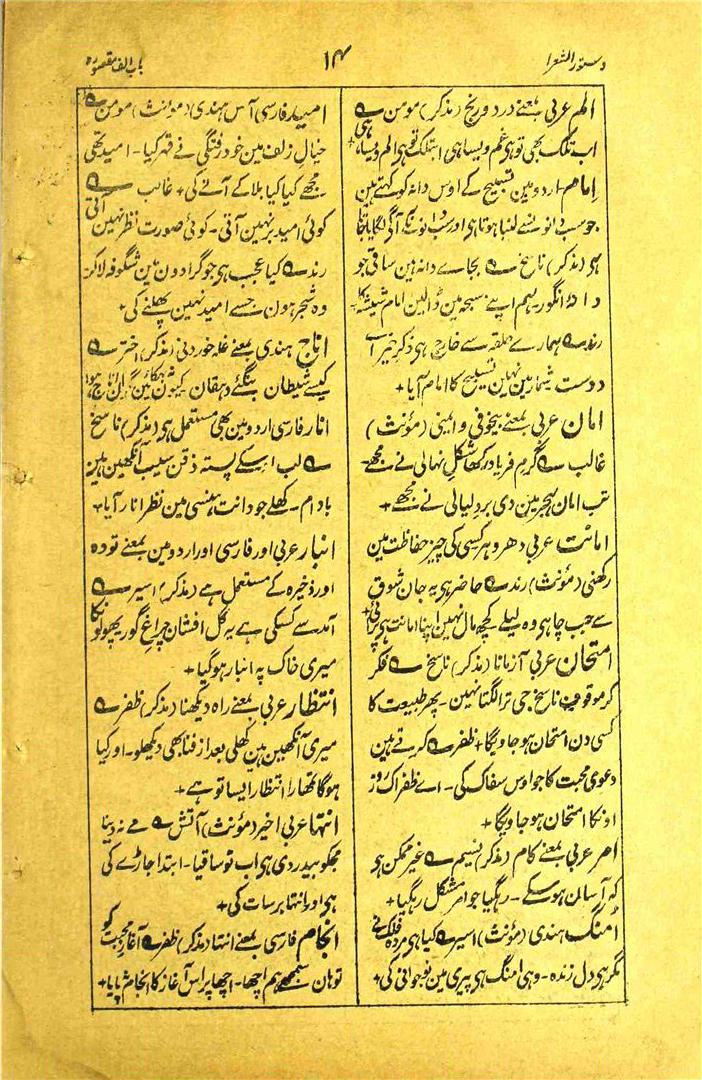 دستور الشعرا
۱۴
باب الف مقصورہ
الم عربی بمعنے درد و رنج (مذکر) مومن ؎
اب تلک بھی توہی غم ویسا ہی ابتلک توہی الم ویسا ہی+
اِمام۔ اردو مین تسبیح کے اوس دانہ کو کہتے ہین
جو سب دانونسے لنبا ہوتا ہی اور سب دانونکے آگے لگایا جاتا
ہی (مذکر) ناسخ ؎ بجاے دانہ ہین ساقی جو
دانۂ انگور۔ ہم اپنے سبحہ مین ڈالین امام شیشہ کا+
رند ؎ ہمارے حلقہ سے خارج ہی ذکرِ خیر اے
دوست شمار مین نہین تسبیح کا امام آیا+
امان عربی بمعنے بیخوفی و ایمنی (مؤنث)
غالب ؎ گرم فریاد رکھا شکل نہالی نے مجھے۔
تب امان ہجر مین دی بردِ لیالی نے مجھے+
امانت عربی دھروہر کسی کی چیز حفاظت مین
رکھنی (مؤنث) رند ؎ حاضر ہی یہ جان شوق
سے جب چاہی وہ لیلے کچھ مال نہین اپنا امانت ہی پرائی+
امتحان عربی آزمانا (مذکر) ناسخ ؎ فکر
کر موقوف ناسخ جی ترا لگتا نہین۔ پھر طبیعت کا
کسی دن امتحان ہو جاویگا+ ظفر ؎ کرتے ہین
دعوی محبت کا جو اوس سفاک کی۔ اے ظفر اک روز
اونکا امتحان ہو جاویگا+
امر عربی بمعنے کام (مذکر) نسیم ؎ غیر ممکن ہی
کہ آسان ہو سکے۔ رہگیا جو امر مشکل رہگیا+
اُمنگ ہندی (مؤنث) اسیر ؎ کیا ہی مردہ فلک نے
مگر ہی دل زندہ۔ وہی امنگ ہی پیری مین نوجوانی کی+
امید فارسی آس ہندی (مؤنث) مومن ؎
خیال زلف مین خود رفتگی نے قہر کیا۔ امید تھی
مجھے کیا کیا بلا کے آنے کی+ غالب ؎
کوئی امید بر نہین آتی۔ کوئی صورت نظر نہین آتی
رند ؎ کیا عجب ہی جو گرادون مین شگوفہ لاکر
وہ شجر ہون جسے امید نہین پھلنے کی+
اناج ہندی بمعنے غلہ خوردنی (مذکر) اختر ؎
کیسے شیطان بنگئے دہقان کیون نہین گران اناج ہوا
انار فارسی اردو مین بھی مستعمل ہی (مذکر) ناسخ
؎ لب اسکے پستہ ذقن سیب آنکھین ہین
بادام۔ کھلے جو دانت ہنسی مین نظر انار آیا+
انبار عربی اور فارسی اور اردو مین بمعنے تودہ
اور ذخیرہ کے مستعمل ہے (مذکر) اسیر ؎
آمد سے کسکی ہے یہ گل افشان چراغ گور پھولونکا
میری خاک پہ انبار ہو گیا+
انتظار عربی بمعنے راہ دیکھنا (مذکر) ظفر ؎
میری آنکھین ہین کھلی بعد از فنا بھی دیکھ لو۔ اور کیا
ہوگا تمھارا انتظار ایسا تو ہے+
انتہا عربی اخیر (مؤنث) آتش ؎ مے نہ دینا
مجکو بیدردی ہی اب تو ساقیا۔ ابتدا جاڑے کی
ہی اور انتہا برسات کی+
انجام فارسی بمعنے انتہا (مذکر) ظفر ؎ آغاز محبت کو
تو ہان سمجھے ہم اچھا۔ اچھا پر اس آغاز کا انجام نپایا+